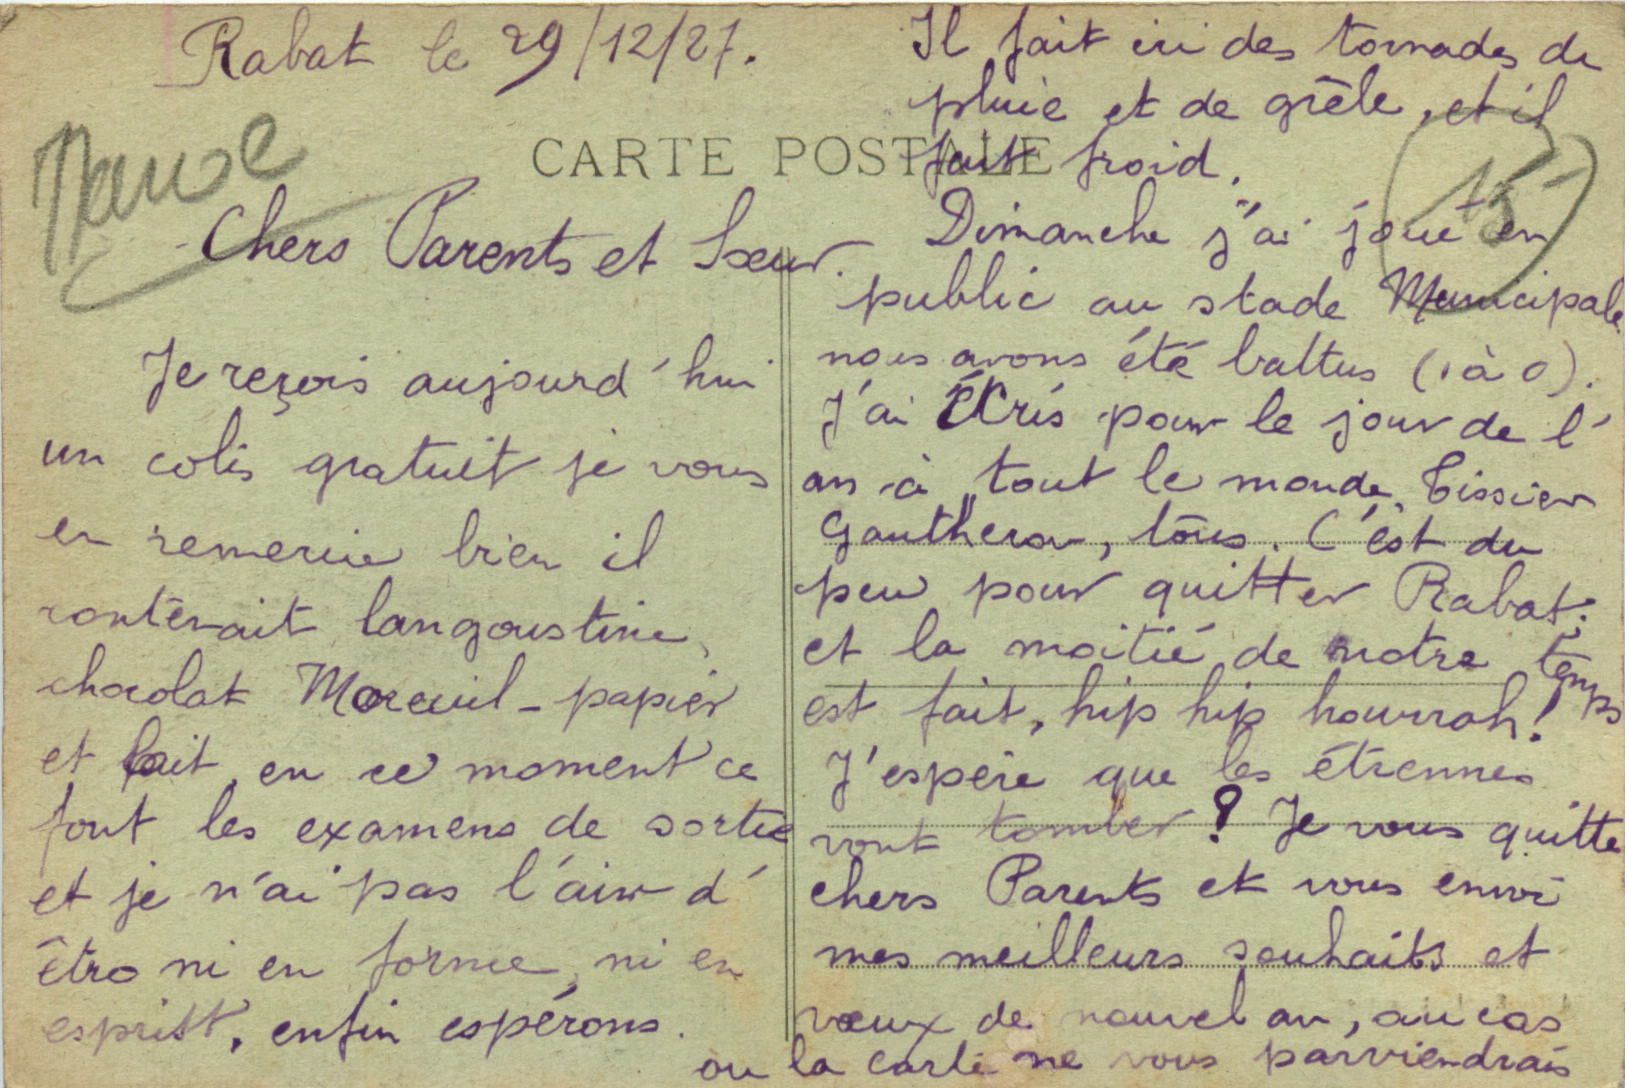 Rabat le 29/12/27.
Maroc
CARTE POSTALE
Chers Parents et Sœur.
Je reçois aujourd'hui
un colis gratuit je vous
en remercie bien il
contenait langoustine,
chocolat Moreuil - papier
et lait, en ce moment ce
font les examens de sortie
et je n'ai pas l'air d'
être ni en forme, ni en
espritt, enfin espérons.
Il fait ici des tornades de
pluie et de grêle, et il
fait froid.
15
Dimanche j'ai joué en
public au stade Municipale
nous avons été battus (1 à 0).
J'ai écris pour le jour de l'
an à tout le monde, Tissier
Gautheron, tous. C'est du
peu pour quitter Rabat;
et la moitié de notre temps
est fait, hip hip hourrah!
J'espère que les étrennes
vont tomber? Je vous quitte
chers Parents et vous envoi
mes meilleurs souhaits et
vœux de nouvel an, au cas
ou la carte ne vous parviendrais